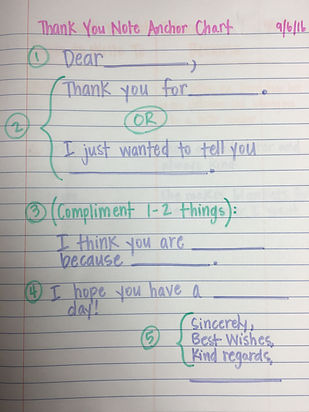 Thank You Note Anchor Chart 9/6/16
① Dear __________,
② Thank you for __________.
OR
I just wanted to tell you
__________.
③ (Compliment 1-2 things):
I think you are __________
because __________.
④ I hope you have a __________
day!
⑤ Sincerely,
Best Wishes,
Kind regards,
__________